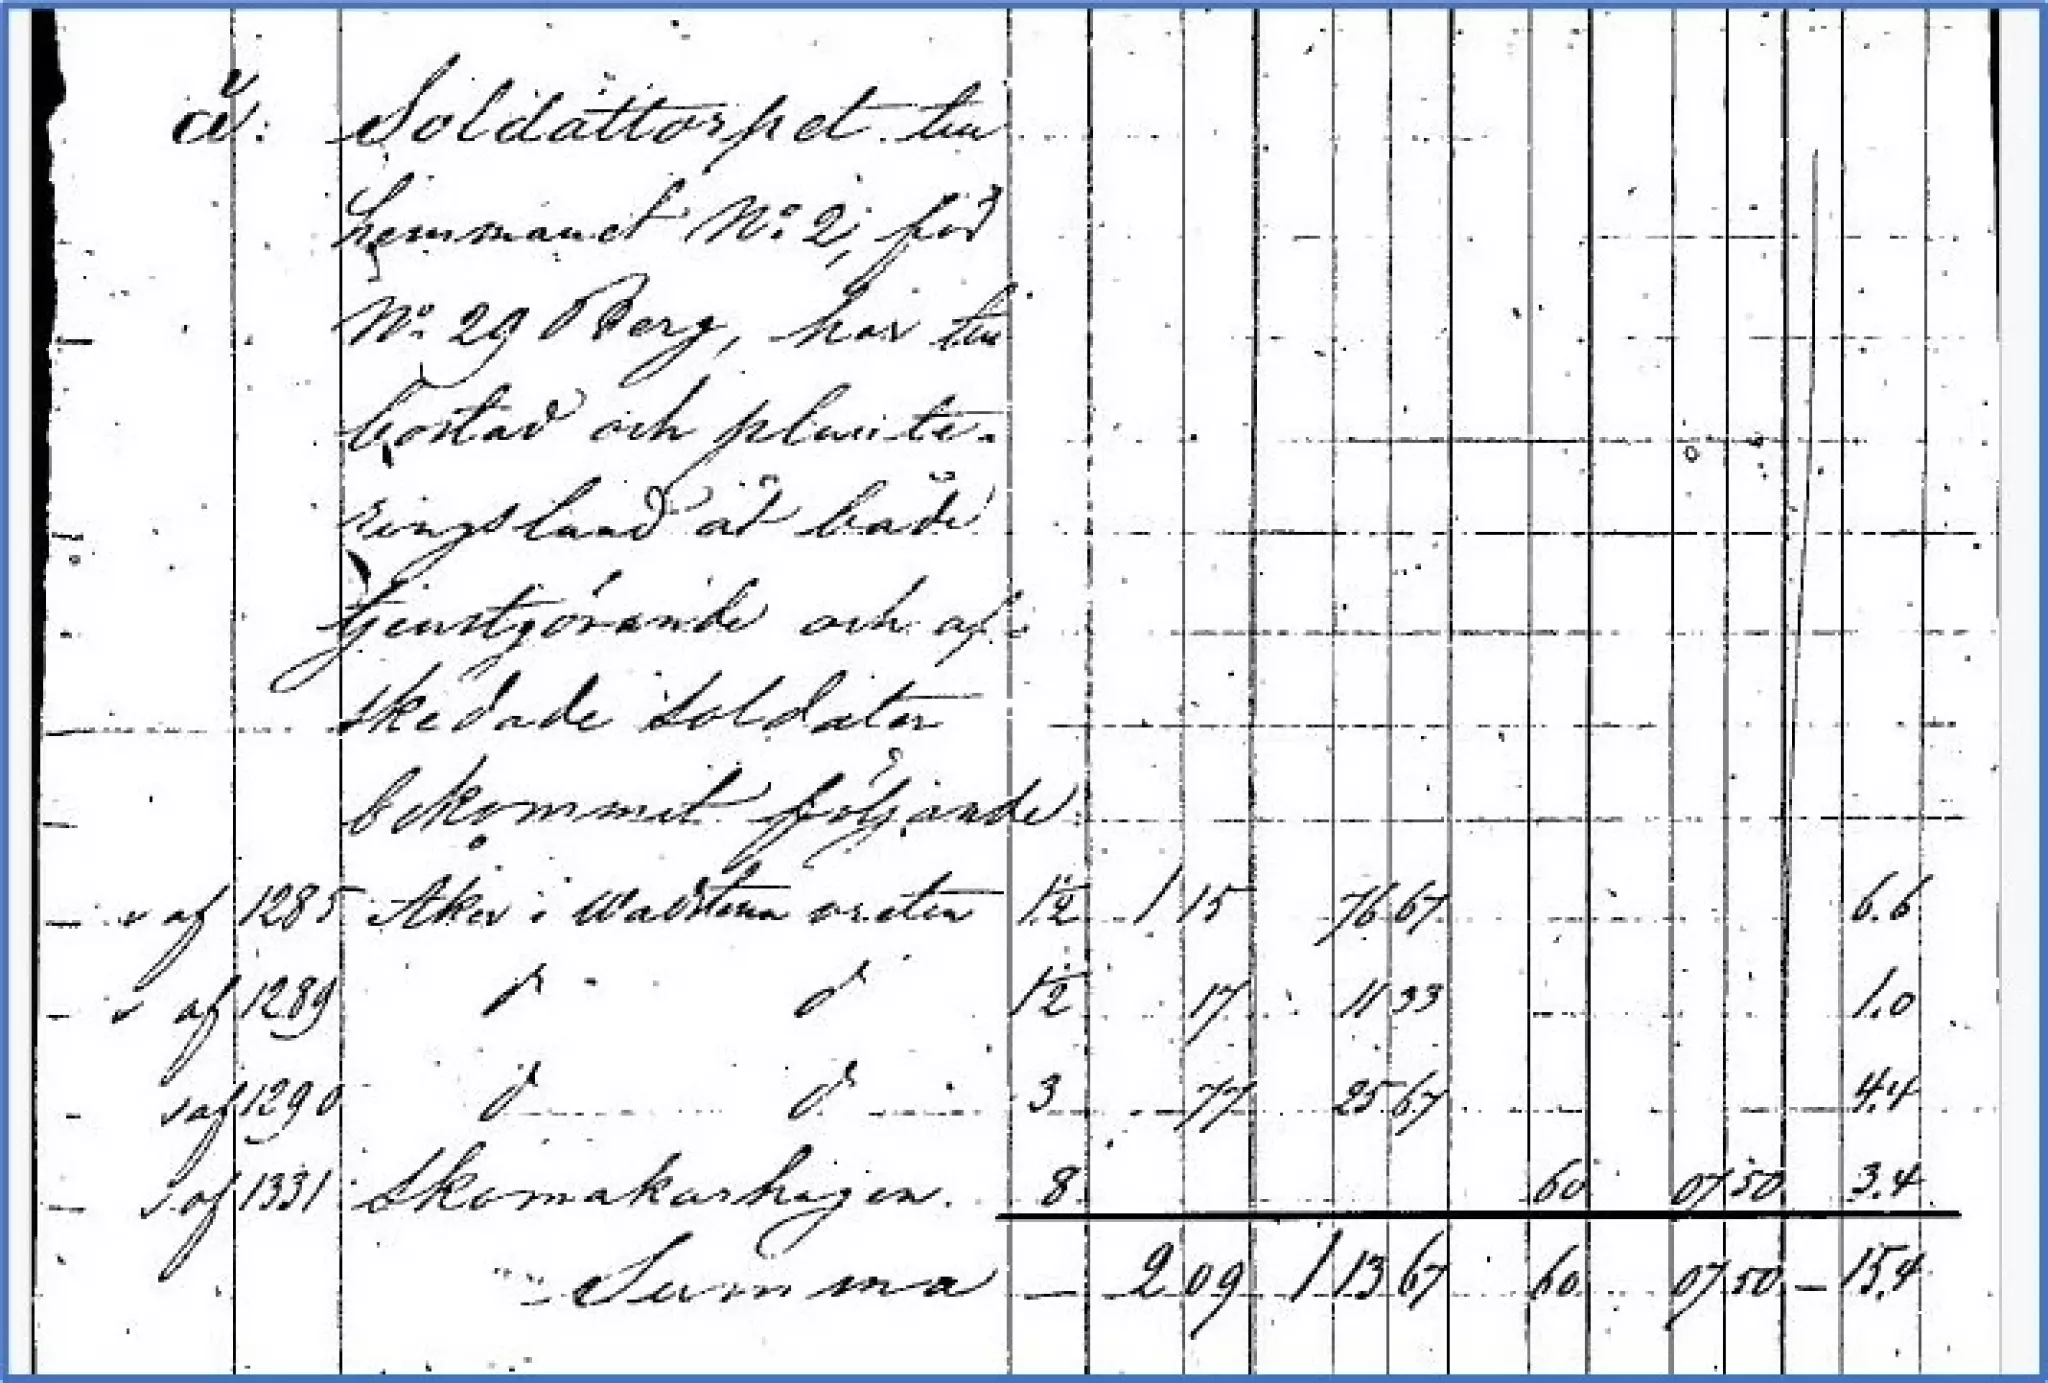 Soldattorpet till
hemmanet No: 2, för
No: 29 Berg, har till
bostad och plante-
ringsland åt både
tjenstgörande och af-
skedade soldater
bekommit följande:
af 1285 Åker i Wadstena oreten 1/2 1 15 76 67 6.6
af 1289 d d 1/2 17 11 33 1.0
af 1290 d d 3 77 25 67 4.4
af 1331 Skomakarhagen. 8 60 07 50 3.4
Summa — 2 09 1 13 67 60 07 50 — 15.4